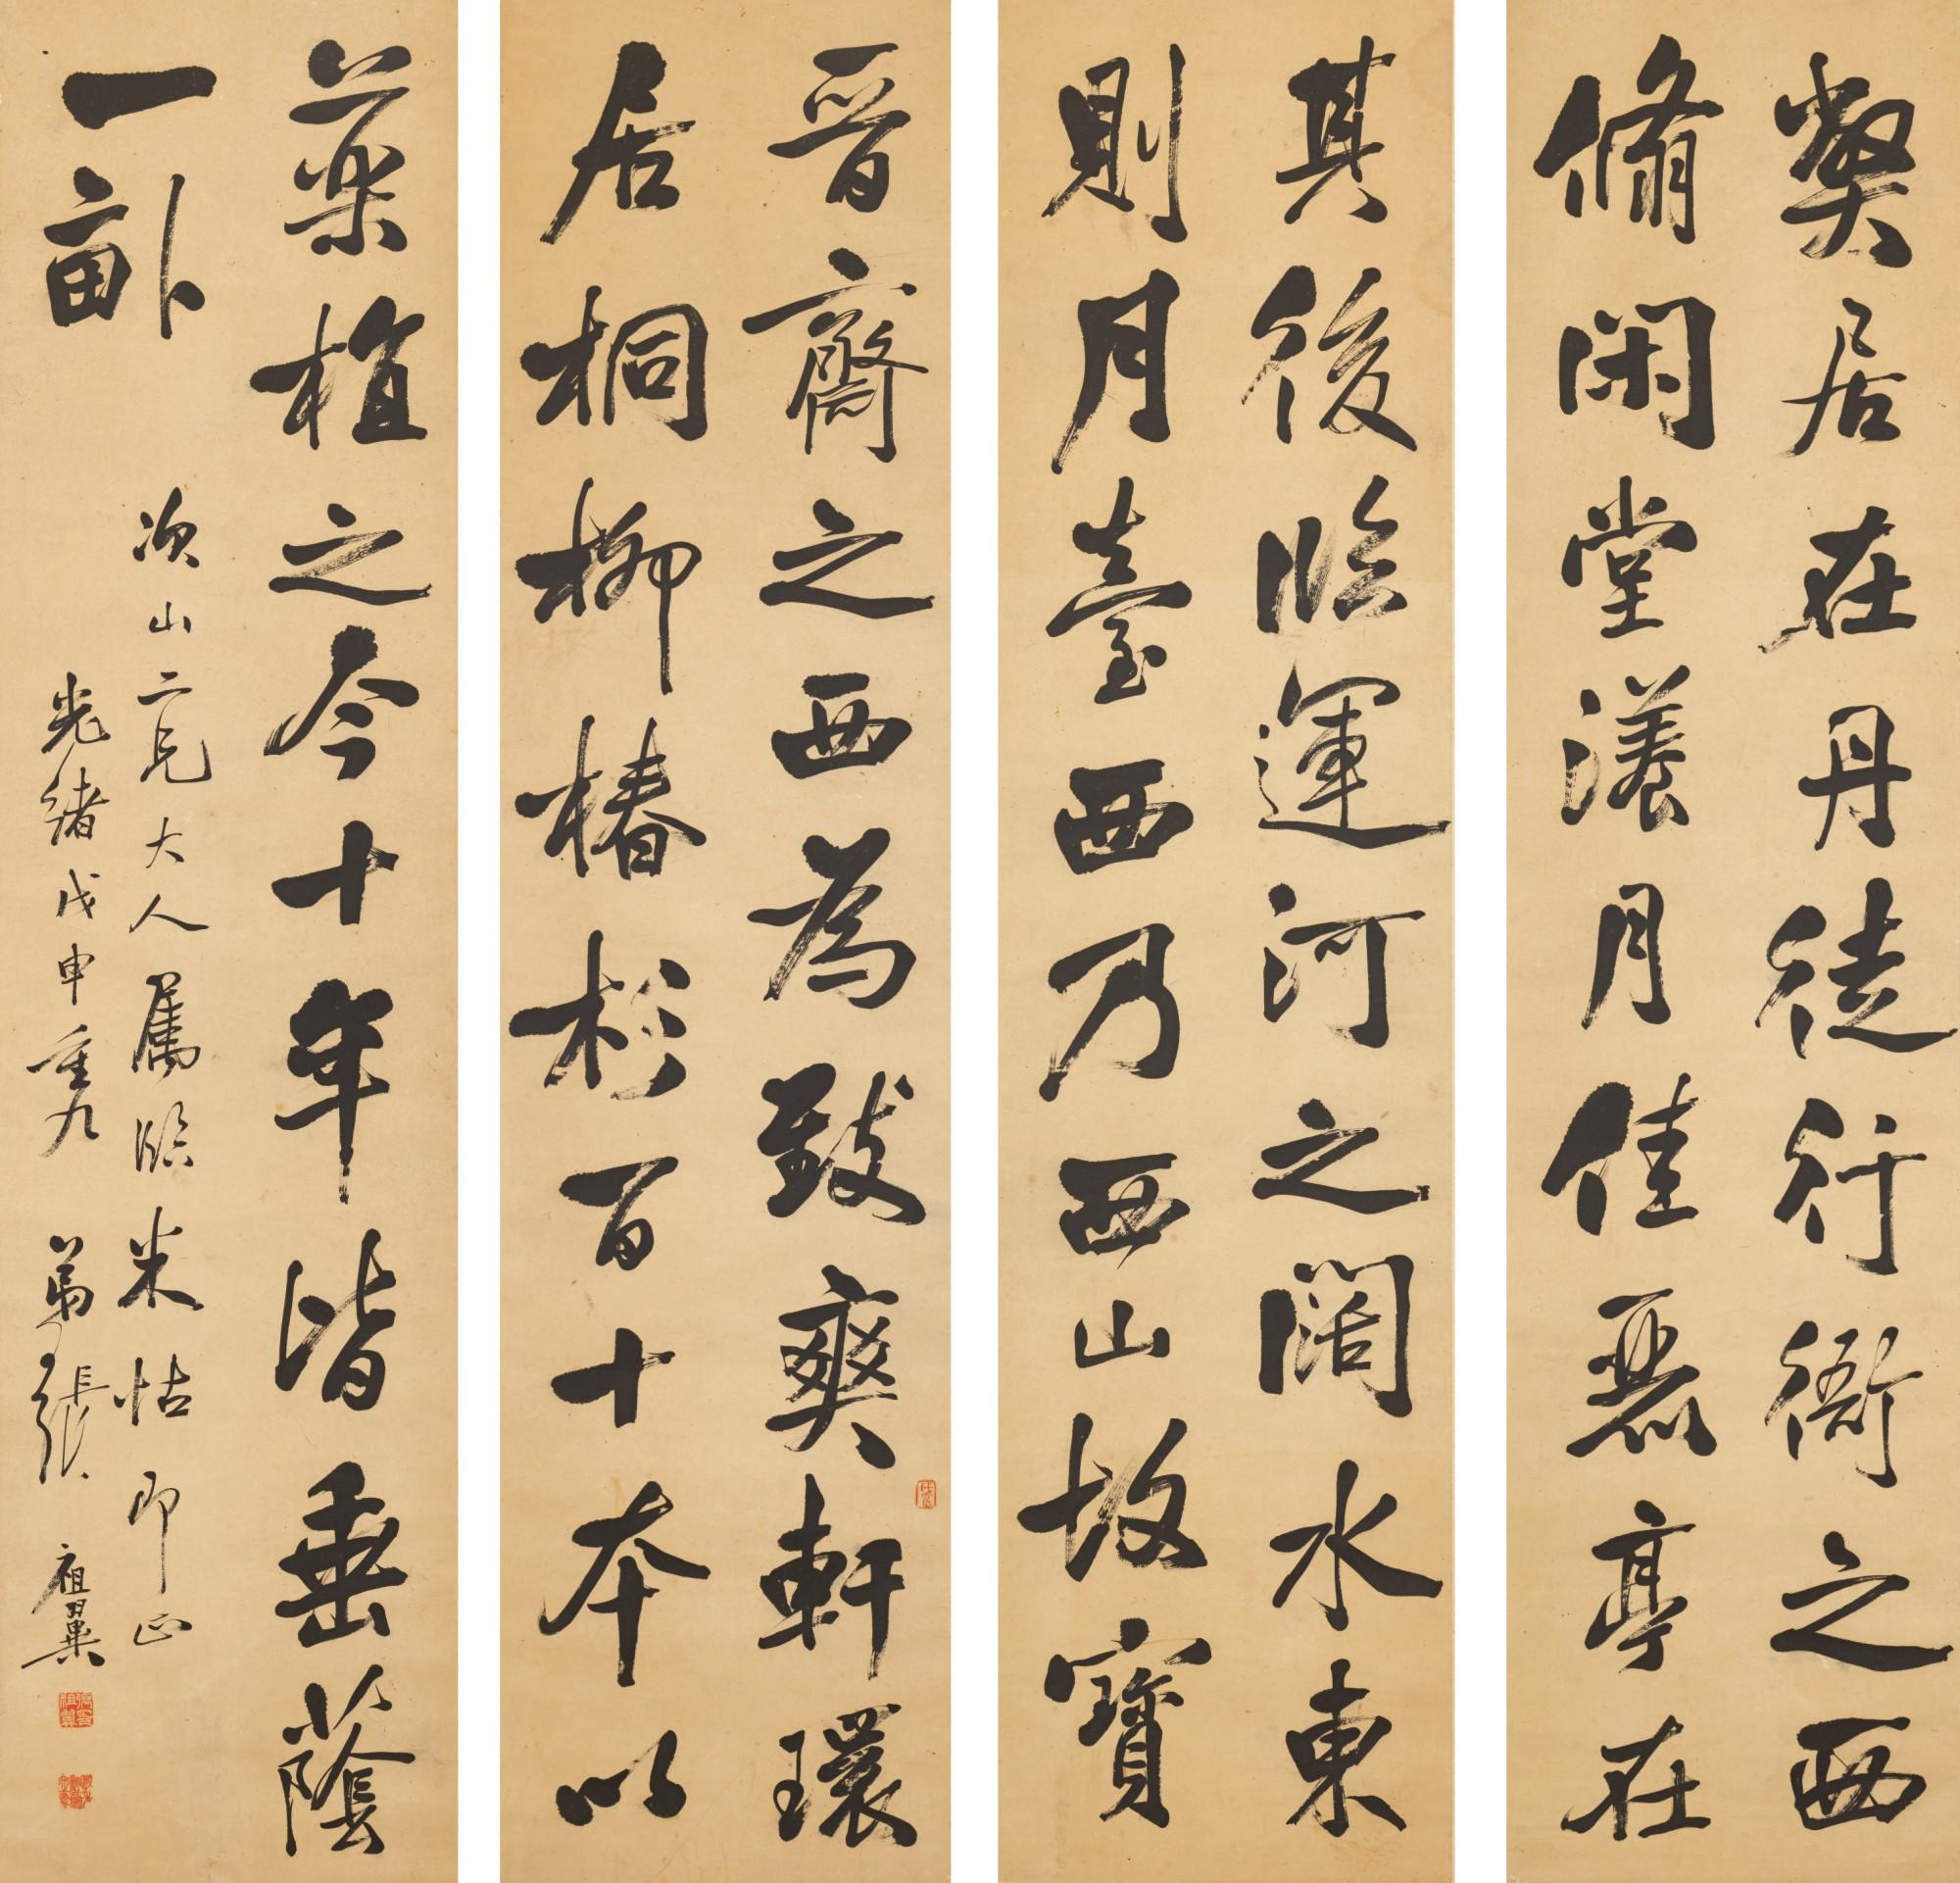 弊居在丹徒行衙之西
脩閑堂漾月佳麗亭在
其後臨運河之闊水東
則月臺西乃西山故寶
晉齋之西為致爽軒環
居桐柳椿杉百十本以
藥植之今十年皆垂蔭
一畝
次山二兄大人屬臨米帖即正
光緒戊申重九 弟張祖翼